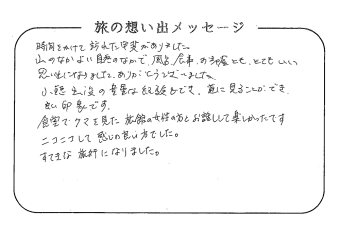 旅の想い出メッセージ
時間をかけて訪れた甲斐がありました。
山のなかよい自然のなかで、風呂、食事、お部屋とも、とてもいい
思い出になりました。ありがとうございました。
小熊 の貴重な経験もでき、直に見ることができ、
良い印象です。
食堂でクマを見た 旅館の女性の方とお話しして楽しかったです
ニコニコして感じの良い方でした。
すてきな旅行になりました。